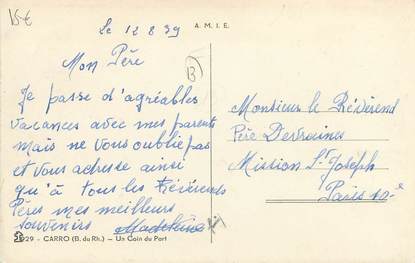 15€
A. M. I. E.
Le 12 8 39
Mon Père
Je passe d'agréables
vacances avec mes parents
mais ne vous oublie pas
et vous adresse ainsi
qu'à tous les Révérends
Pères mes meilleurs
souvenirs Madeleine
B
Monsieur le Révérend
Père Dervaines
Mission St Joseph
Paris 10e
29 - CARRO (B. du Rh.) - Un Coin du Port